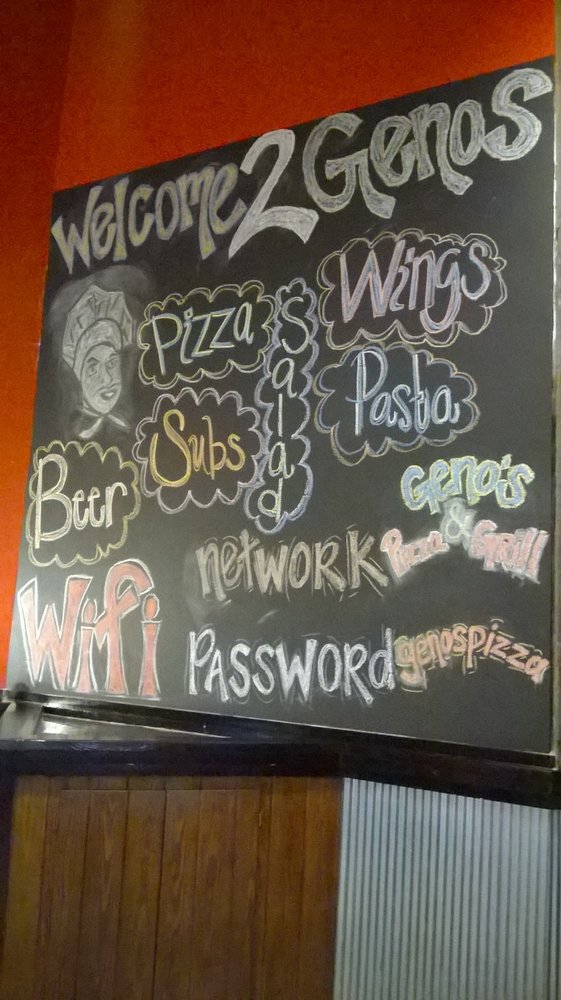 Welcome 2 Genos
Pizza
Salad
Wings
Subs
Pasta
Beer
Wifi
network
Geno's
Pizza & Grill
PASSWORd
genospizza